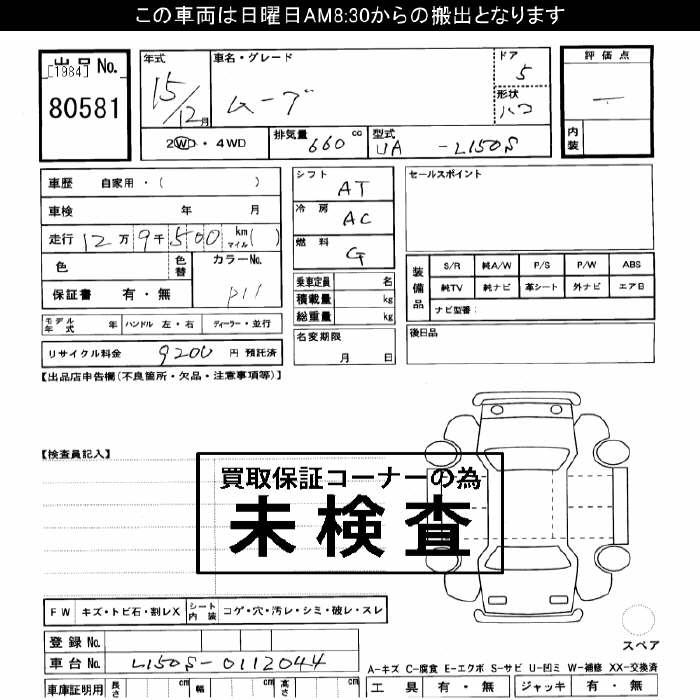 この車両は日曜日AM8:30からの搬出となります
出品 No.
[1984]
80581
年式
15/12月
車名・グレード
ムーブ
ドア
5
形状
ハコ
評価点
―
内装
2WD・4WD
排気量
660 cc
型式
UA -L150S
車歴 自家用・( )
車検 年 月
走行 12万9千500 km マイル ( )
色
色替
カラーNo.
P11
保証書 有・無
モデル年式 年
ハンドル 左・右
ディーラー・並行
リサイクル料金 9200 円 預託済
シフト AT
冷房 AC
燃料 G
乗車定員 名
積載量 kg
総重量 kg
名変期限
月 日
セールスポイント
装備品
S/R 純A/W P/S P/W ABS
純TV 純ナビ 革シート 外ナビ エアB
ナビ型番:
後日品
【出品店申告欄(不良箇所・欠品・注意事項等)】
【検査員記入】
買取保証コーナーの為
未検査
FW キズ・トビ石・割レX
シート内装 コゲ・穴・汚レ・シミ・破レ・スレ
登録 No.
車台 No. L150S-0112044
車庫証明用 長さ cm 幅 cm 高さ cm
スペア
A-キズ C-腐食 E-エクボ S-サビ U-凹ミ W-補修 XX-交換済
工具 有・無 ジャッキ 有・無